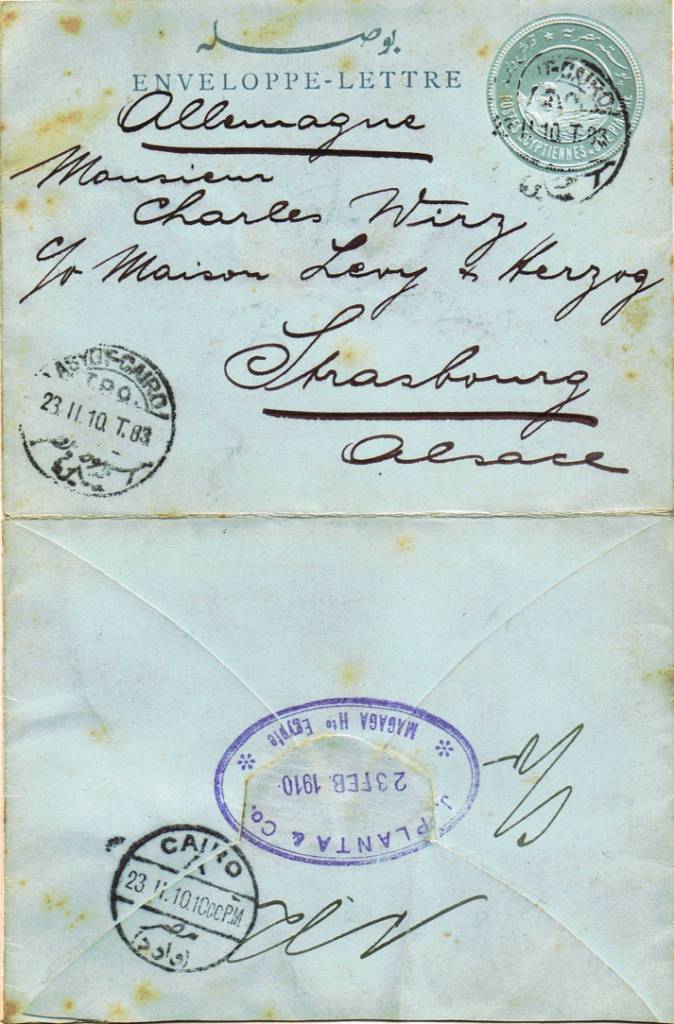 بوصله
ENVELOPPE-LETTRE
Allemagne
Monsieur
Charles Wirz
c/o Maison Levy & Herzog
Strasbourg
Alsace
T-CAIRO
II.10.T.83
POSTES EGYPTIENNES
ASYUT-CAIRO
T.P.O.
23.II.10.T.83
MAGAGA Hte EGYPTE
23 FEB. 1910
J. PLANTA & CO.
CAIRO
23.II.10.10 00 P.M
مصر
(وارد)